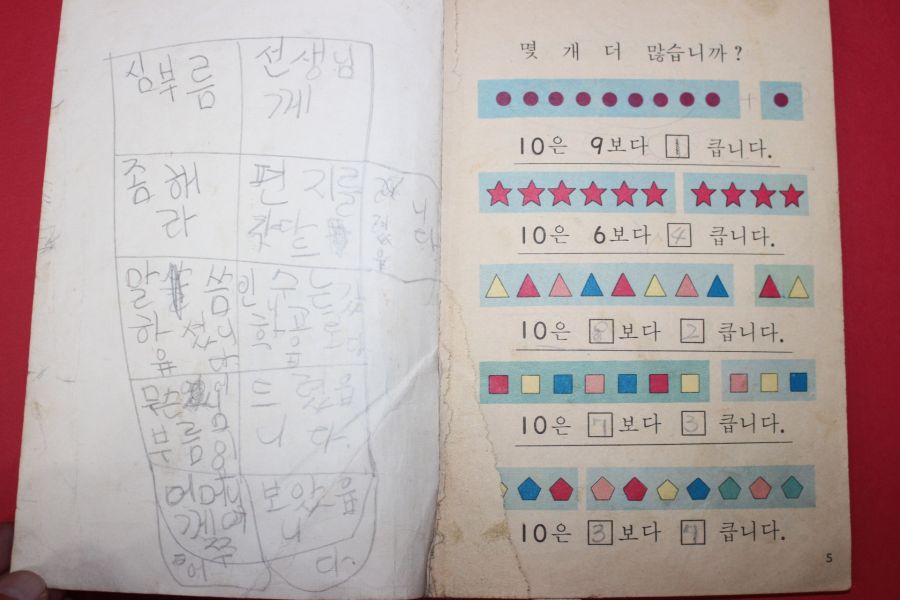 심부름
선생님
께
좀 해
라
편 지를
갖다 드
니
다
말 씀
하 셨
읍
인 수 는
학 공
무슨
부름
드 렸읍
니 다.
어머니
께
보았읍
니
다.
몇 개 더 많습니까?
+
10은 9보다 1 큽니다.
10은 6보다 4 큽니다.
10은 8보다 2 큽니다.
10은 7보다 3 큽니다.
10은 3보다 7 큽니다.
5